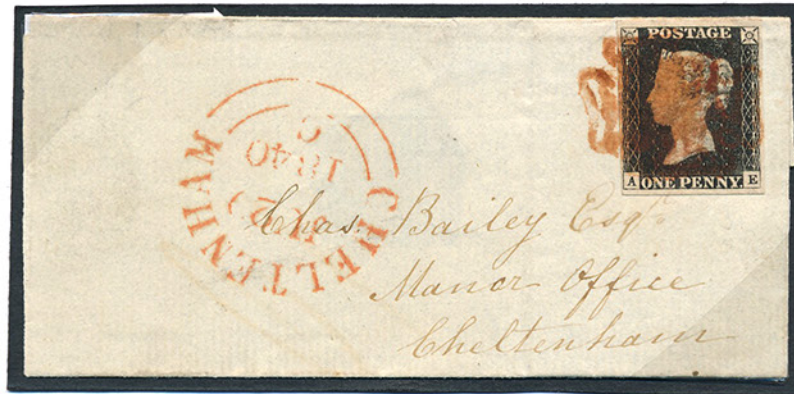 POSTAGE
A E
ONE PENNY.
CHELTENHAM
1840
C
Chas. Bailey Esqr.
Manor Office
Cheltenham